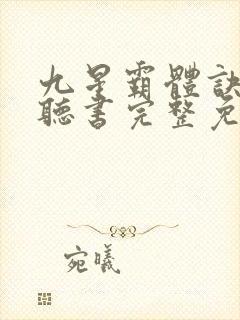 九星霸體訣
聽書完整免
宛曦